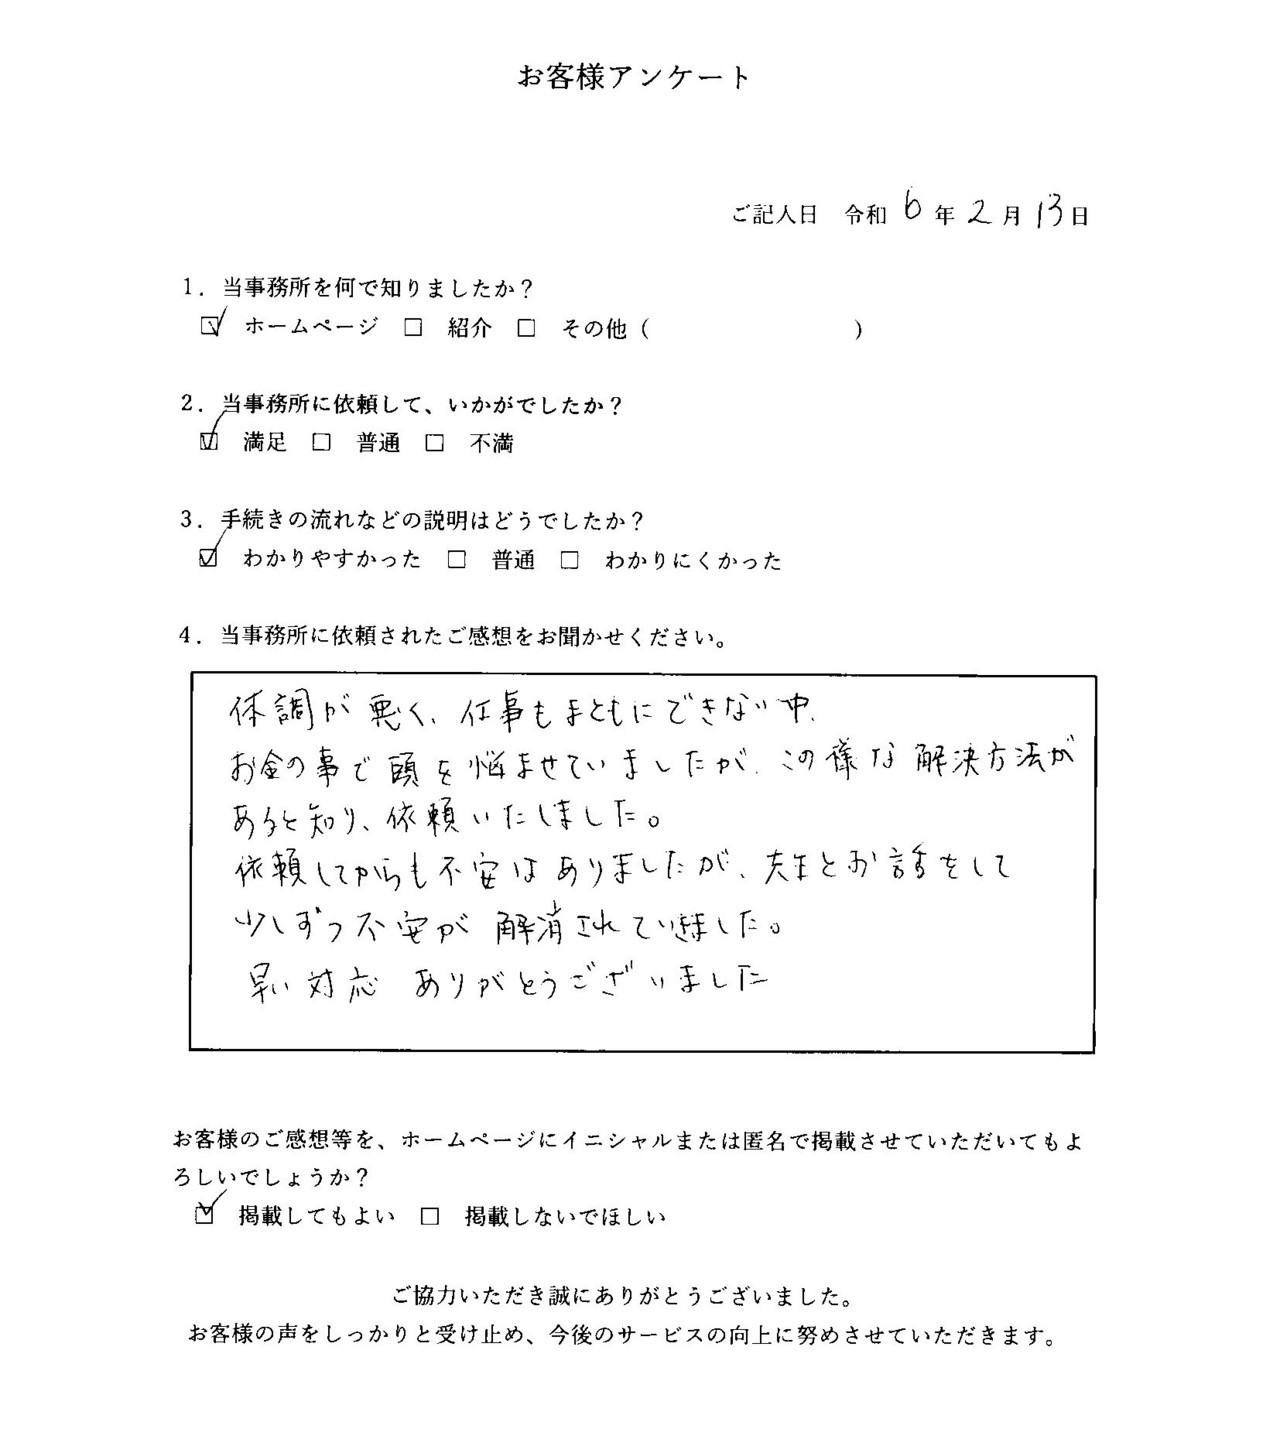 お客様アンケート
ご記入日 令和 6 年 2 月 13 日
1. 当事務所を何で知りましたか？
☑ ホームページ □ 紹介 □ その他（ ）
2. 当事務所に依頼して、いかがでしたか？
☑ 満足 □ 普通 □ 不満
3. 手続きの流れなどの説明はどうでしたか？
☑ わかりやすかった □ 普通 □ わかりにくかった
4. 当事務所に依頼されたご感想をお聞かせください。
体調が悪く、仕事もまともにできない中、
お金の事で頭を悩ませていましたが、この様な解決方法が
あると知り、依頼いたしました。
依頼してからも不安はありましたが、先生とお話をして
少しずつ不安が解消されていきました。
早い対応 ありがとうございました
お客様のご感想等を、ホームページにイニシャルまたは匿名で掲載させていただいてもよ
ろしいでしょうか？
☑ 掲載してもよい □ 掲載しないでほしい
ご協力いただき誠にありがとうございました。
お客様の声をしっかりと受け止め、今後のサービスの向上に努めさせていただきます。